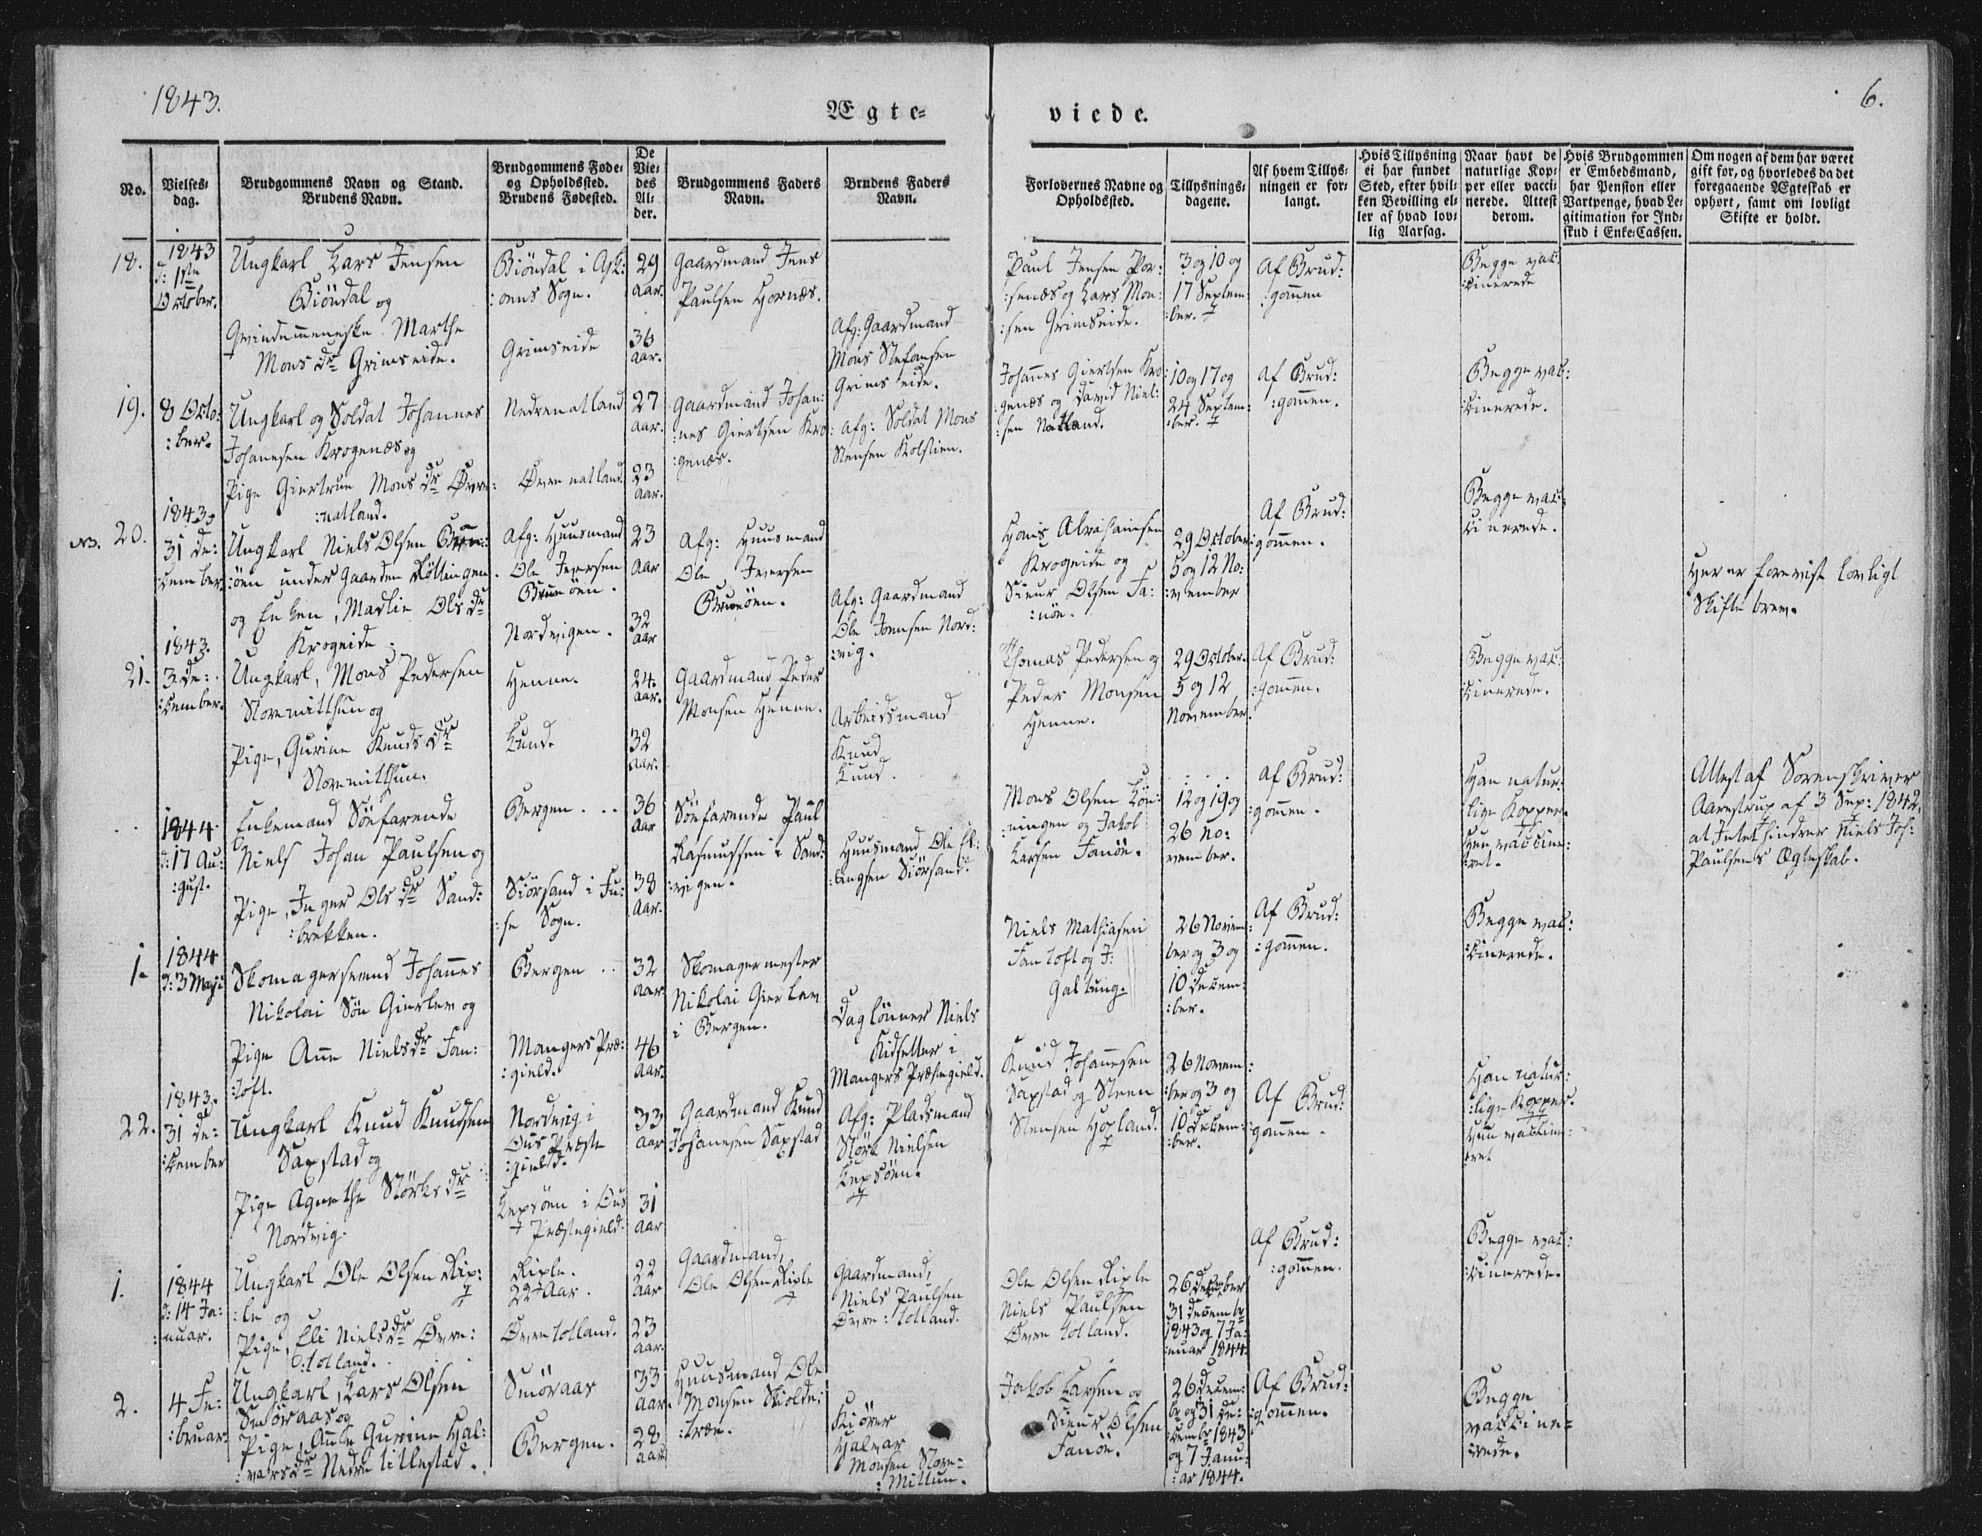 1843.
6.
Ægte=
viede.
No.
Vielses=
dag.
Brudgommens Navn og Stand.
Brudens Navn.
Brudgommens Føde=
og Opholdssted.
Brudens Fødested.
De
Vie=
des
Al=
der.
Brudgommens Faders
Navn.
Brudens Faders
Navn.
Forlovernes Navne og
Opholdssted.
Tillysnings=
dagene.
Af hvem Tillys=
ningen er for=
langt.
Hvis Tillysning
ei har fundet
Sted, efter hvil=
ken Bevilling el=
ler af hvad lov=
lig Aarsag.
Naar havt de
naturlige Kop=
per eller vacci=
nerede. Attest
derom.
Hvis Brudgommen
er Embedsmand,
har Pension eller
Vartpenge, hvad Le=
gitimation for Ind=
skud i Enke=Cassen.
Om nogen af dem har været
gift før, og hvorledes da det
foregaaende Ægteskab er
ophørt, samt om lovligt
Skifte er holdt.
18.
1843
d: 1ste
October.
Ungkarl Lars Jensen
Biöndal og
Qvindemenneske Marthe
Mons dr Grimseide.
Biöndal i Ask:
:oens Sogn.
Grimseide
29
aar.
36
aar.
Gaardmand Jens
Paulsen Hornæs.
Afg: Gaardmand
Mons Stefansen
Grimseide.
Paul Jensen Por:
:senæs og Lars Mon:
:sen Grimseide.
3 og 10 og
17 Septem:
:ber.
Af Brud:
:gommen
Begge vac:
:cinerede
19.
8 Octo:
:ber.
Ungkarl og Soldat Johannes
Johanesen Krogenæs og
Pige Giertrue Mons dr Övre:
:natland.
Nedrenatland
Övrenatland.
27
aar.
23
aar.
Gaardmand Johan:
:nes Giertsen Kro:
:genæs.
Afg: Soldat Mons
Stensen Kolstien.
Johanes Giertsen Kro:
:genæs og David Niel:
:sen Natland.
10 og 17 og
24 Septem:
:ber.
Af Brud:
:gommen.
Begge vac:
:cinerede.
NB. 20.
1843.
31 De:
:cember
Ungkarl Niels Olsen Brun:
:öen under Gaarden Röttingen
og Enken, Madlie Ols dr
Krogeide.
Afg: Huusmand
Ole Iversen
Brunöen.
Nordvigen.
23
Aar
32
Aar
Afg: Huusmand
Ole Iversen
Brunöen.
Afg: Gaardmand
Ole Jonsen Nord:
:vig.
Hans Abrahamsen
Krogeide og
Sieur Olsen Fa:
:nöe.
29 October
5 og 12 No:
:vember
Af Brud:
:gommen.
Begge vac:
:cinerede.
Her er foreviist lovligt
Skiftebrev.
21.
1843.
3 De:
:cember.
Ungkarl, Mons Pedersen
Storemitthun og
Pige, Gurine Knuds dr
Storemitthun.
Henne.
Lund.
24.
aar.
32
aar.
Gaardmand Peder
Monsen Henne.
Arbeidsmand
Knud
Lund.
Thomas Pedersen og
Peder Monsen
Henne.
29 October.
5 og 12
November
Af Brud:
:gommen.
Begge vac:
:cinerede.
1844.
d: 17 Au:
:gust.
Enkemand Söefarende
Niels Johan Paulsen og
Pige, Inger Ols dr Sand:
:brekken.
Bergen
Siörsand i Fu:
:se Sogn.
36
Aar
38
Aar.
Söefarende Paul
Rasmussen i Sand:
:vigen.
Huusmand Ole El:
:lingsen Siörsand.
Mons Olsen Kön:
:ningen og Jakob
Larsen Fanöe.
12 og 19 og
26 No:
vember.
af Brud:
:gommen.
Han natur:
:lige Kopper.
Hun vaccine:
:ret.
Attest af Sorenskriver
Aarestrup af 3 Sep: 1842,
at Intet hindrer Niels Joh:
Paulsens Ægteskab.
1.
1844
d: 3 Maji
Skomagersvend Johannes
Nikolai Sön Gierlew og
Pige Ane Niels dr Fan:
:toft.
Bergen
Mangers Præ:
:gield.
32
aar
46
aar.
Skomagermester
Nikolai Gierlew
i Bergen.
Daglönner Niels
Kidsetter i
Mangers Præstegield.
Niels Mathiasen
Fantoft og J:
Galtung.
26 Novem:
ber og 3 og
10 Decem:
:ber.
Af Brud:
:gommen.
Begge vac:
:cinerede.
22.
1843.
31 De:
:cember
Ungkarl Knud Knudsen
Saxstad og
Pige Agnethe Störks dr
Nordvig.
Nordvig i
Ous Præste
:gield.
Lexöen i Ous
Præstegield.
33
aar
31
aar
Gaardmand Knud
Johanesen Saxstad
Afg: Pladsmand
Störk Nielsen
Lexöen.
Knud Johanesen
Saxstad og Steen
Stensen Hopland.
26 Novem:
:ber og 3 og
10 Decem:
:ber.
Af Brud:
:gommen.
Han natur:
:lige Kopper.
Hun vaccine:
:ret
1.
1844
d: 14 Ja:
:nuar.
Ungkarl Ole Olsen Rip:
:le og
Pige, Eli Niels dr Övre:
:totland.
Riple.
22 Aar.
Övretotland.
22
Aar
23
aar.
Gaardmand,
Ole Olsen Riple
Gaardmand,
Niels Paulsen
Övre:totland.
Ole Olsen Riple
Niels Paulsen
Övretotland.
26 December
31 Decembr
1843 og 7 Ja:
:nuar 1844
Af Brud:
:gommen.
Begge vac:
:cinerede.
2.
4 Fe:
:bruar.
Ungkarl, Lars Olsen
Smöraas og
Pige, Ane Gurine Hal:
:vars dr Nedre tillestad.
Smöraas
Bergen.
33
aar.
28
aar
Huusmand Ole
Monsen Skolde:
:træe.
Kiörer
Halvar
Monsen Store=
:Mittun.
Jakob Larsen og
Sieur Olsen
Fanöe.
26 Decem:
br og 31 De:
:cembr 1843
og 7 Janu:
:ar 1844.
Af Brud:
:gommen.
Begge
vaccine=
:rede.